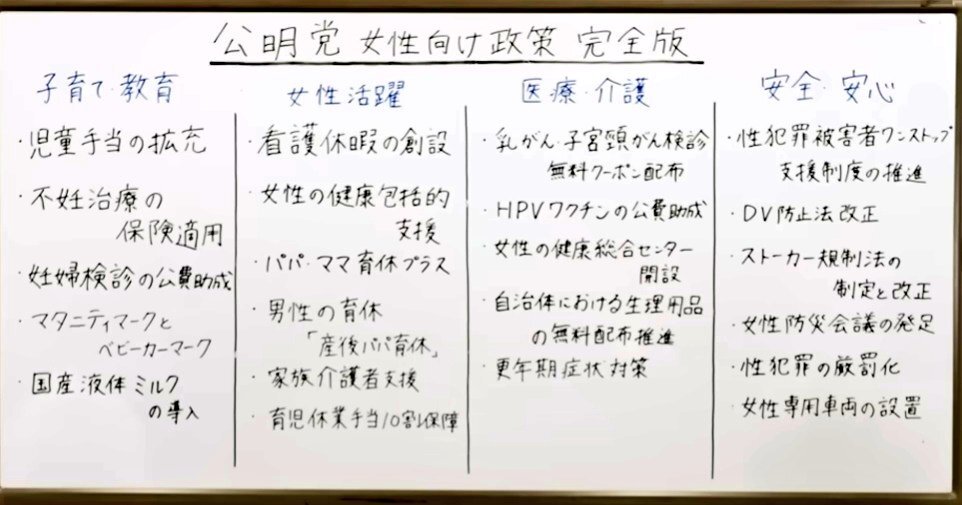 公明党 女性向け政策 完全版
子育て・教育
・児童手当の拡充
・不妊治療の
保険適用
・妊婦検診の公費助成
・マタニティマークと
ベビーカーマーク
・国産液体ミルク
の導入
女性活躍
・看護休暇の創設
・女性の健康包括的
支援
・パパ・ママ育休プラス
・男性の育休
「産後パパ育休」
・家族介護者支援
・育児休業手当10割保障
医療・介護
・乳がん・子宮頸がん検診
無料クーポン配布
・HPVワクチンの公費助成
・女性の健康総合センター
開設
・自治体における生理用品
の無料配布推進
・更年期症状対策
安全・安心
・性犯罪被害者ワンストップ
支援制度の推進
・DV防止法改正
・ストーカー規制法の
制定と改正
・女性防災会議の発足
・性犯罪の厳罰化
・女性専用車両の設置